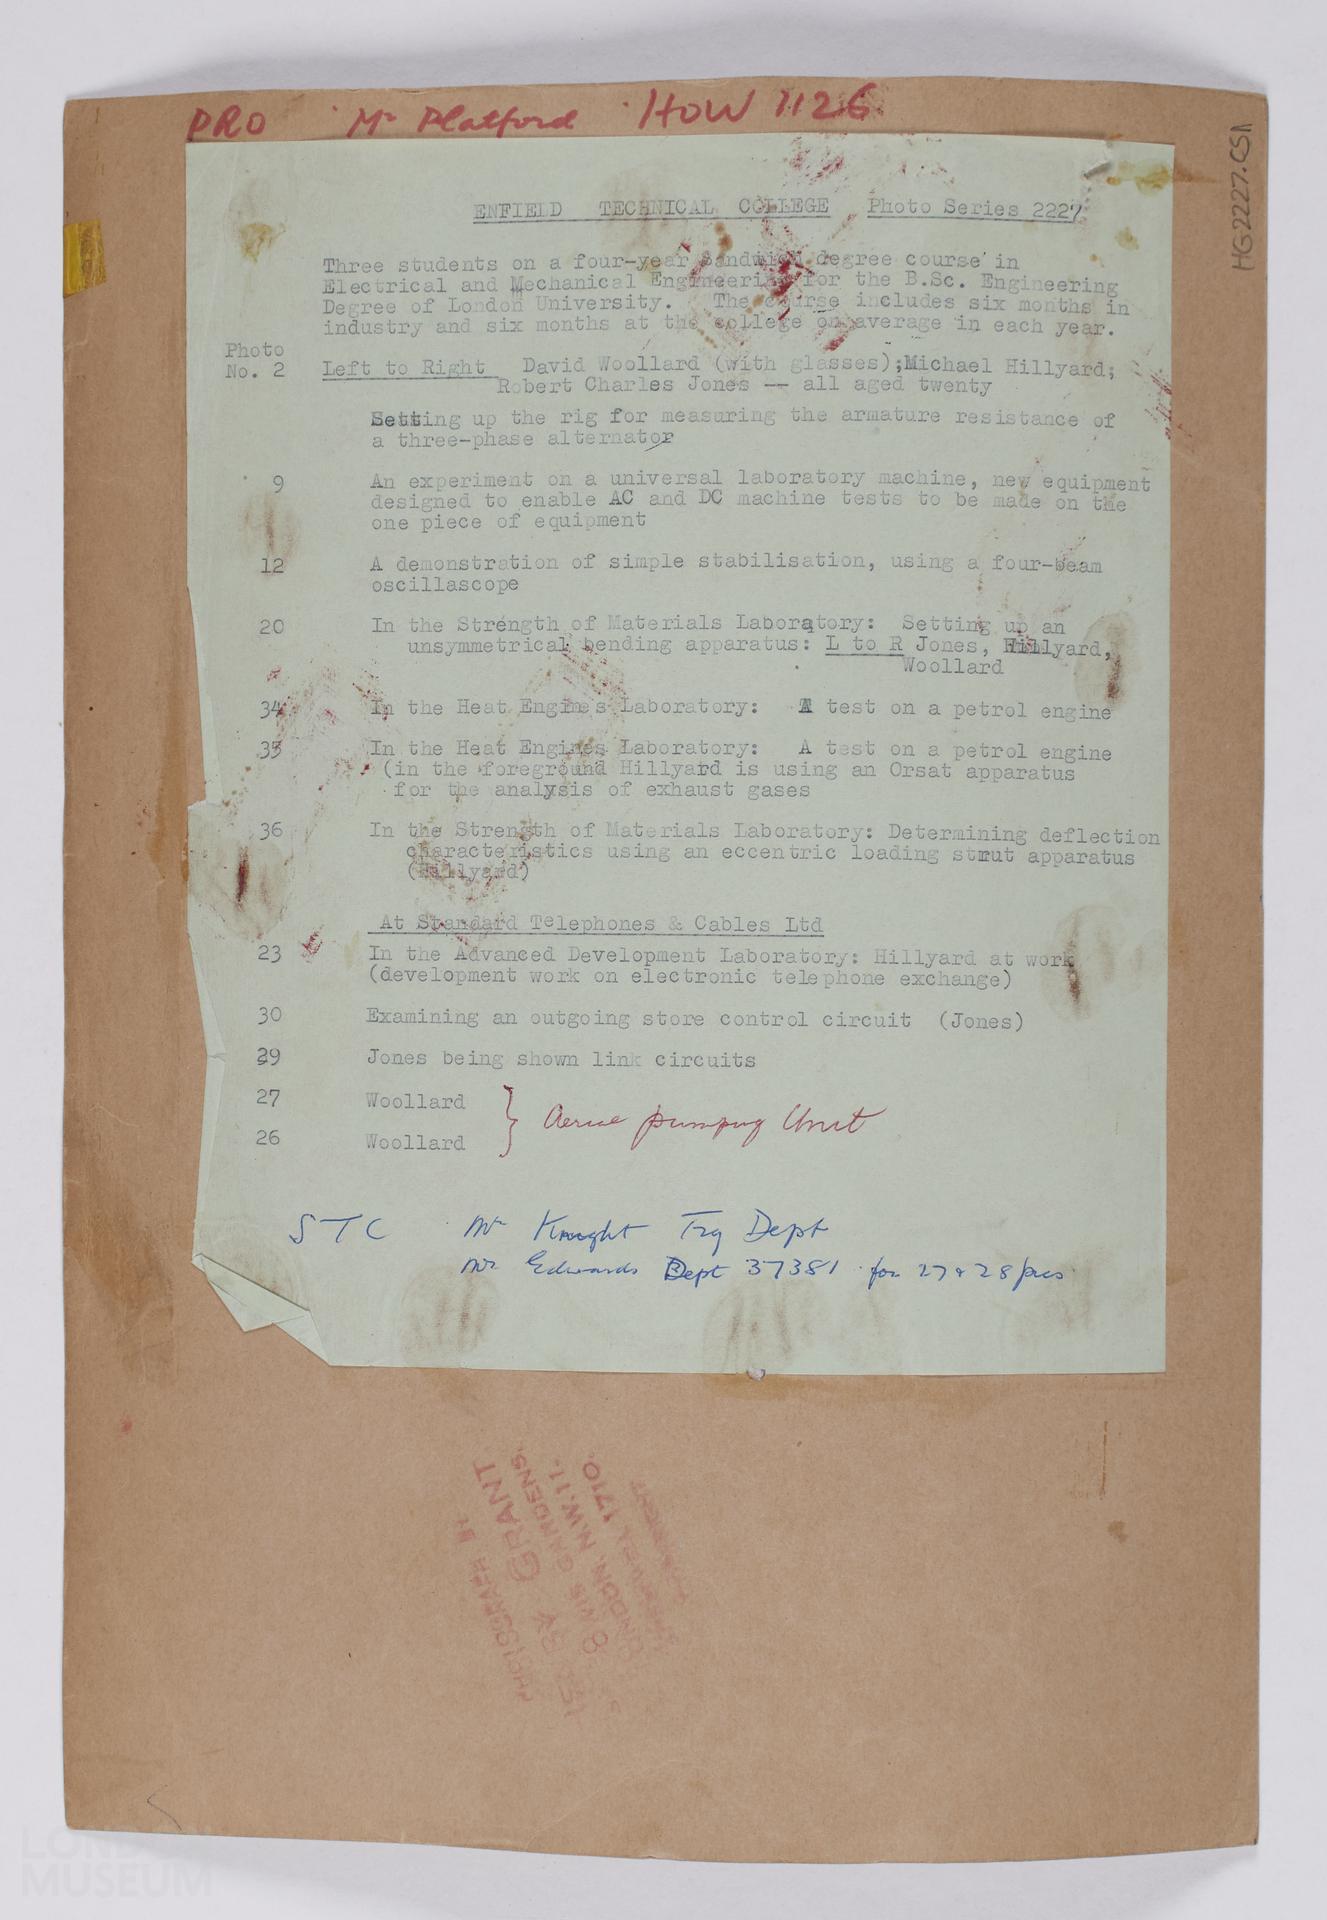 PRO Mr Platford HOW 1126
HG2227.CS1
ENFIELD TECHNICAL COLLEGE Photo Series 2227
Three students on a four-year Sandwich degree course in
Electrical and Mechanical Engineering for the B.Sc. Engineering
Degree of London University. The course includes six months in
industry and six months at the college on average in each year.
Photo
No. 2 Left to Right David Woollard (with glasses);Michael Hillyard;
Robert Charles Jones -- all aged twenty
Setting up the rig for measuring the armature resistance of
a three-phase alternator
9 An experiment on a universal laboratory machine, new equipment
designed to enable AC and DC machine tests to be made on the
one piece of equipment
12 A demonstration of simple stabilisation, using a four-beam
oscillascope
20 In the Strength of Materials Laboratory: Setting up an
unsymmetrical bending apparatus: L to R Jones, Hillyard,
Woollard
34 In the Heat Engines Laboratory: A test on a petrol engine
35 In the Heat Engines Laboratory: A test on a petrol engine
(in the foreground Hillyard is using an Orsat apparatus
for the analysis of exhaust gases
36 In the Strength of Materials Laboratory: Determining deflection
characteristics using an eccentric loading strut apparatus
(Hillyard)
At Standard Telephones & Cables Ltd
23 In the Advanced Development Laboratory: Hillyard at work
(development work on electronic telephone exchange)
30 Examining an outgoing store control circuit (Jones)
29 Jones being shown link circuits
27 Woollard
26 Woollard
} Aerial pumping Unit
STC Mr Knight Trg Dept
Mr Edwards Dept 37381 for 27 & 28 pics
PHOTOGRAPH
BY GRANT
GARDENS,
LONDON, N.W.11.
1710.
COPYRIGHT
LONDON
MUSEUM